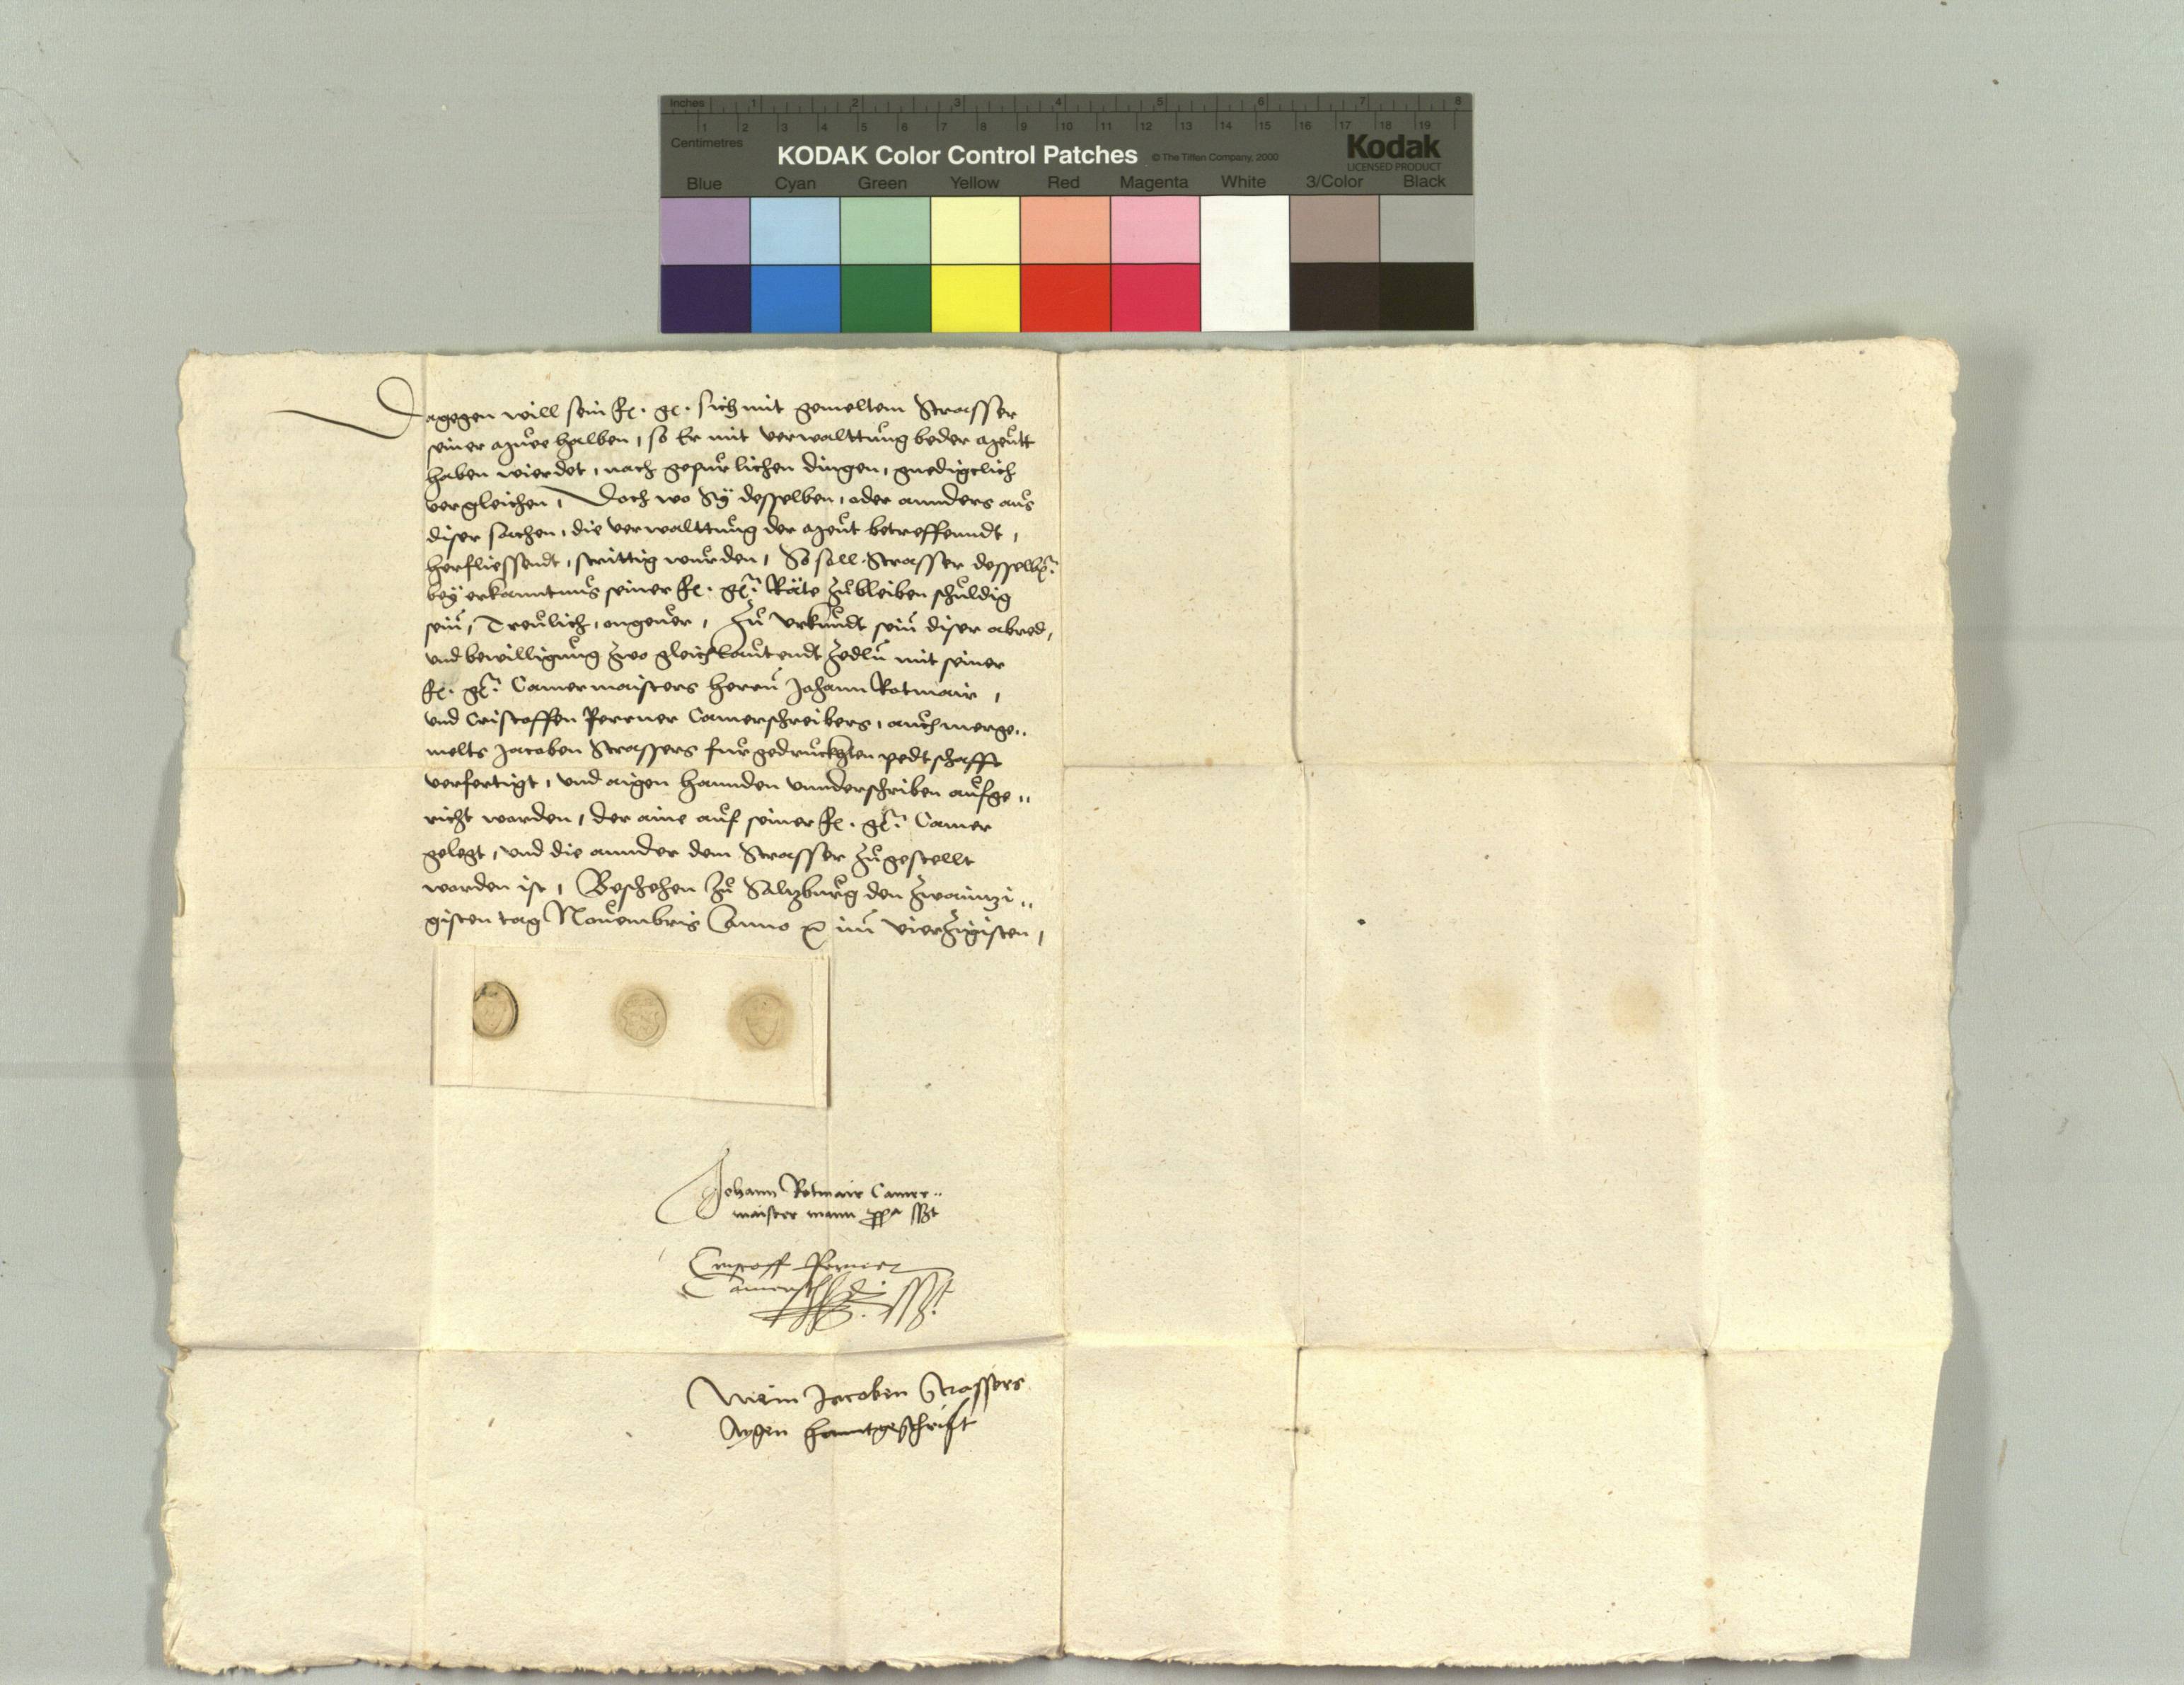 Inches 1 2 3 4 5 6 7 8
1 2 3 4 5 6 7 8 9 10 11 12 13 14 15 16 17 18 19
Centimetres
KODAK Color Control Patches © The Tiffen Company, 2000 Kodak
LICENSED PRODUCT
Blue Cyan Green Yellow Red Magenta White 3/Color Black
Dagegen will sein f. g. sich mit gemeltem Strasser
seiner halben, so Er mit verwalttung beder
haben wierdet, nach gepurlichen dingen, gnedigclich
vergleichen, Doch wo Sy desselben, oder annders aus
diser sachen, die verwalttung der betreffenndt,
herfliessendt, strittig wurden, So soll Strasser desselbn
bey erkanntnus seiner f. g. Räte zubleiben schuldig
sein, Treulich, ongeuer, Zu vrkundt sein diser abred,
vnd bewilligung zwo gleichlautendt zedln mit seiner
f. g. Camermaisters herrn Johann Rotmair,
vnd Cristoffen Perner Camerschreibers, auch merge„
melts Jacoben Strassers furgedruckhten pedtschafft
verfertigt, vnd aigen hannden vnnderschriben aufge„
richt worden, der aine auf seiner f. g. Camer
gelegt, vnd die annder dem Strasser zugestellt
worden ist, Beschehen zu Saltzburg den zwaintzi„
gisten tag Nouembris Anno im vierzigisten,
Johann Rotmair Camer„
maister manu ppa sszt
Cristoff Perner
Mein Jacoben Strassers
Aygen hanntgeschrift